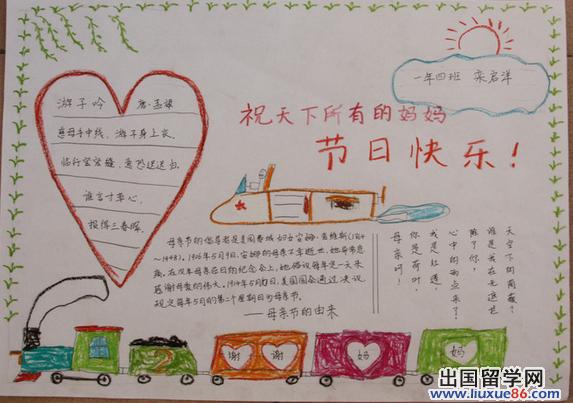 一年四班 栾启洋
祝天下所有的妈妈
节日快乐!
游子吟 唐·孟郊
慈母手中线,游子身上衣。
临行密密缝,意恐迟迟归。
谁言寸草心,
报得三春晖。
母亲节的倡导者是美国费城妇女安娜·查维斯
~1948),1906年5月9日,安娜的母亲不幸逝世,她非常悲
痛,在次年母亲忌日的纪念会上,她倡议每年定一天来
感谢母爱的伟大。1914年5月日,美国国会通过决议
规定每年5月的第二个星期日为母亲节。
——母亲节的由来
母亲呵!
你是荷叶,
我是红莲,
心中的雨点来了,
除了你,
谁是我在无遮拦
天空下的荫蔽?
谢
谢
妈
妈
出国留学网
www.liuxue86.com